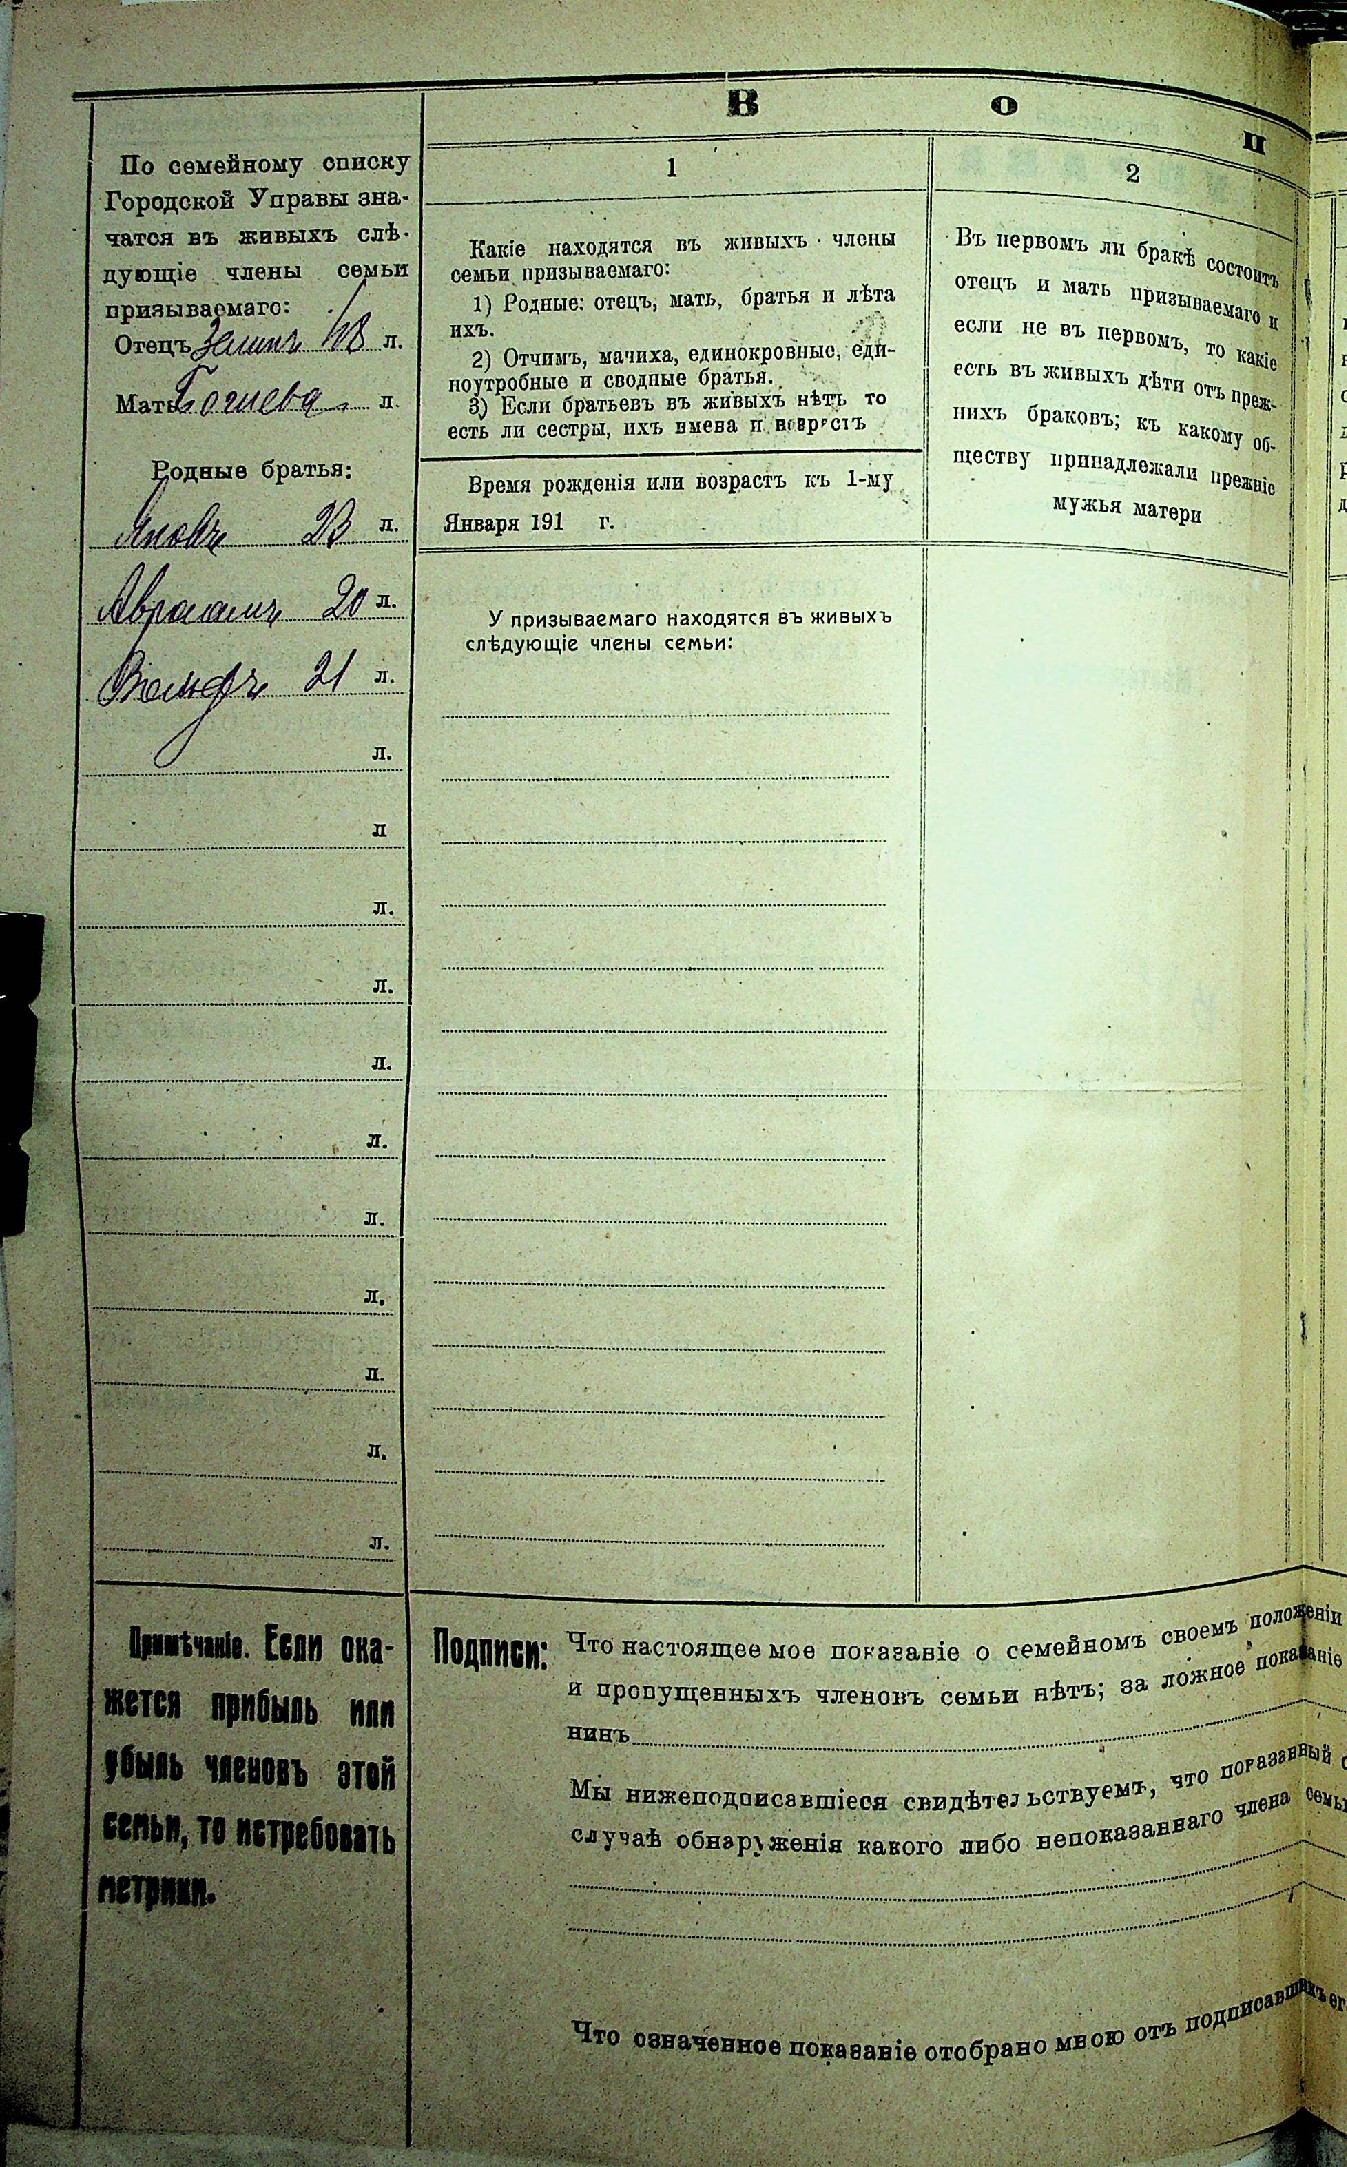 В о п
По семейному списку
Городской Управы зна-
чатся въ живыхъ слѣ-
дующіе члены семьи
призываемаго:
Отецъ Зелинъ 48 л.
Мать л.
Родные братья:
Яковъ 23 л.
Авраамъ 20 л.
Вольфъ 21 л.
л.
л
л.
л.
л.
л.
л.
л.
л.
л.
л.
Примѣчаніе. Если ока-
жется прибыль или
убыль членовъ этой
семьи, то истребовать
метрики.
1
Какіе находятся въ живыхъ члены
семьи призываемаго:
1) Родные: отецъ, мать, братья и лѣта
ихъ.
2) Отчимъ, мачиха, единокровные, еди-
ноутробные и сводные братья.
3) Если братьевъ въ живыхъ нѣтъ то
есть ли сестры, ихъ имена и возрастъ
Время рожденія или возрастъ къ 1-му
Января 191 г.
У призываемаго находятся въ живыхъ
слѣдующіе члены семьи:
2
Въ первомъ ли бракѣ состоитъ
отецъ и мать призываемаго и
если не въ первомъ, то какіе
есть въ живыхъ дѣти отъ преж-
нихъ браковъ; къ какому об-
ществу принадлежали прежніе
мужья матери
Подписи: Что настоящее мое показаніе о семейномъ своемъ положеніи
и пропущенныхъ членовъ семьи нѣтъ; за ложное показаніе
нинъ
Мы нижеподписавшіеся свидѣтельствуемъ, что показанный с
случаѣ обнаруженія какого либо непоказаннаго члена семьи
Что означенное показаніе отобрано мною отъ подписавшихъ ег